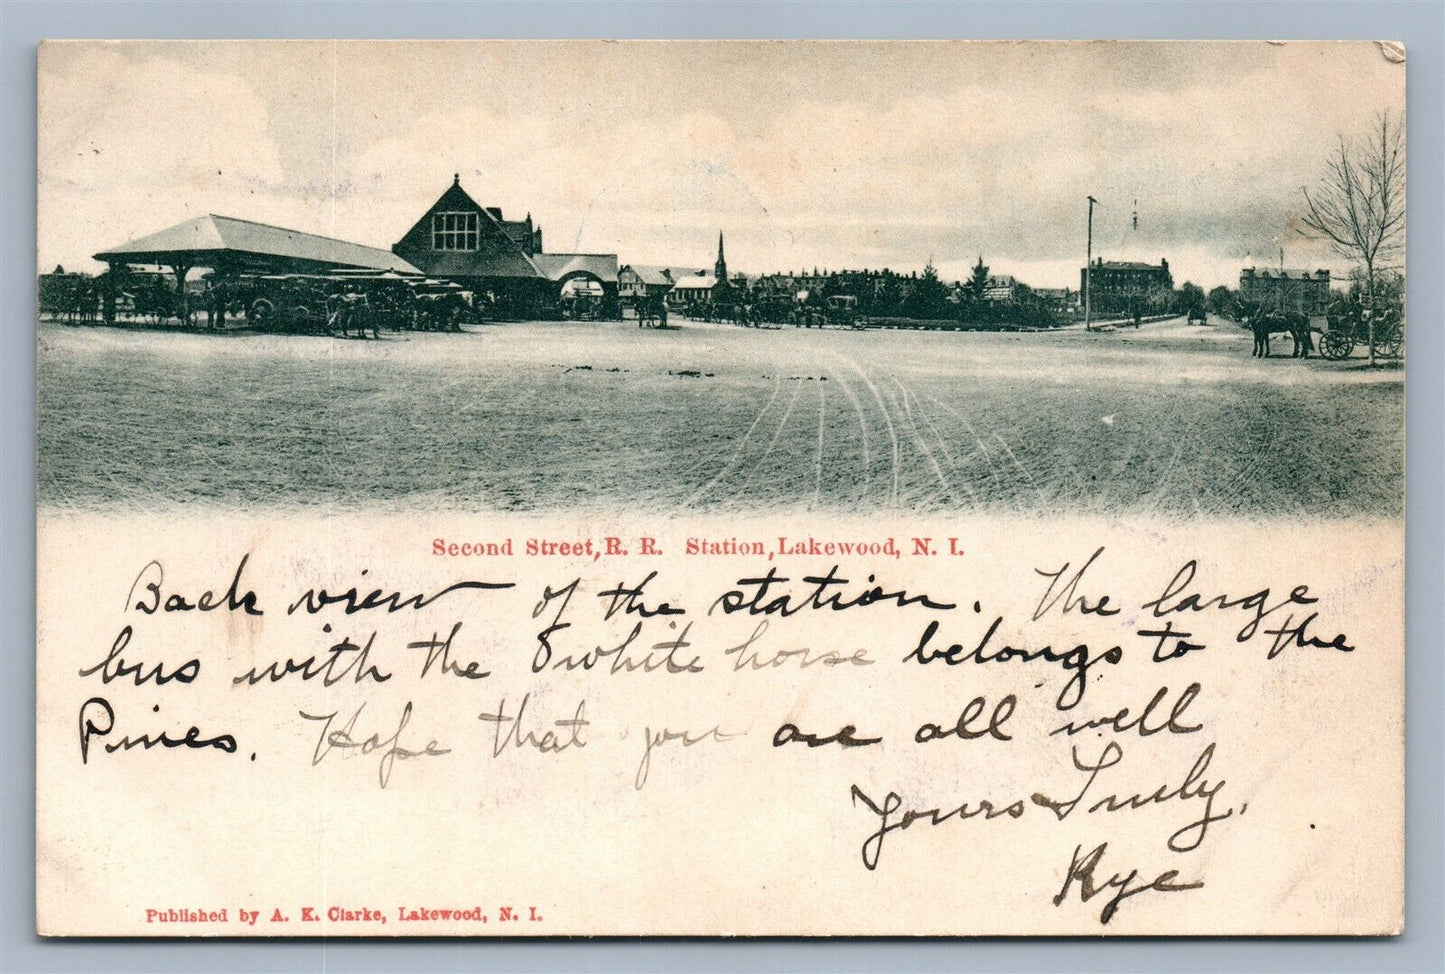 Second Street, R. R. Station, Lakewood, N. I.
Back view of the station. The large
bus with the 8 white horse belongs to the
Pines. Hope that you are all well
Yours Truly,
Kye
Published by A. K. Clarke, Lakewood, N. I.